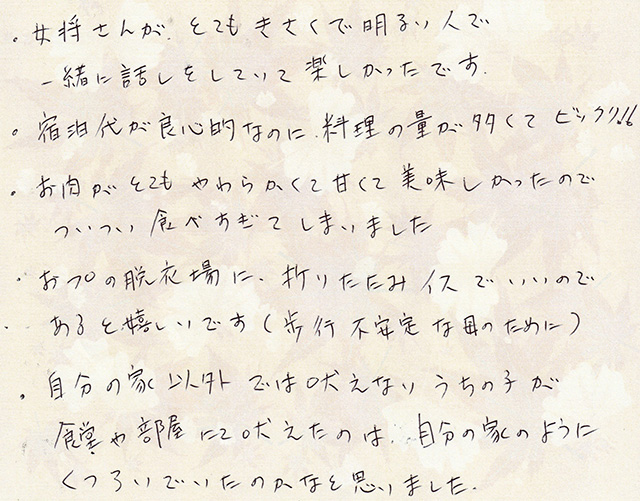 ・女将さんが、とてもきさくで明るい人で
一緒に話しをしていて楽しかったです。
・宿泊代が良心的なのに、料理の量が多くてビックリ!!
・お肉がとてもやわらかくて甘くて美味しかったので
ついつい食べすぎてしまいました
・おフロの脱衣場に、折りたたみイスでいいので
あると嬉しいです(歩行不安定な母のために)
・自分の家以外では吠えないうちの子が
食堂や部屋にて吠えたのは、自分の家のように
くつろいでいたのかなと思いました。